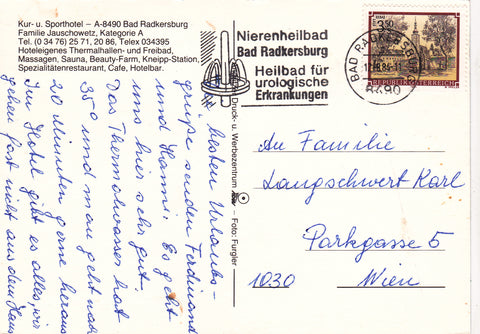 Kur- u. Sporthotel – A-8490 Bad Radkersburg
Familie Jauschowetz, Kategorie A
Tel. (0 34 76) 25 71, 20 86, Telex 034395
Hoteleigenes Thermalhallen- und Freibad,
Massagen, Sauna, Beauty-Farm, Kneipp-Station,
Spezialitätenrestaurant, Cafe, Hotelbar.
Nierenheilbad
Bad Radkersburg
Heilbad für
urologische
Erkrankungen
BAD RADKERSBURG
8490
3.50
REPUBLIK ÖSTERREICH
Druck- u. Werbezentrum
Foto: Furgler
besten Urlaubs-
grüße senden Ferdinand
und Hanni. Es geht
uns hier sehr gut.
Das Thermalwasser hat
35° und man geht nach
20 Minuten gerne heraus
Im Hotel gibt es alles, wir
gehen fast nicht aus dem Haus
An Familie
Langschwert Karl
Parkgasse 5
1030 Wien